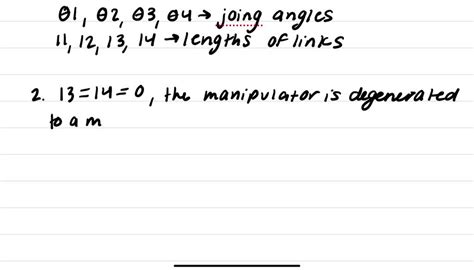 θ1, θ2, θ3, θ4 → joing angles
l1, l2, l3, l4 → lengths of links
2. l3 = l4 = 0, the manipulator is degenerated
to a m